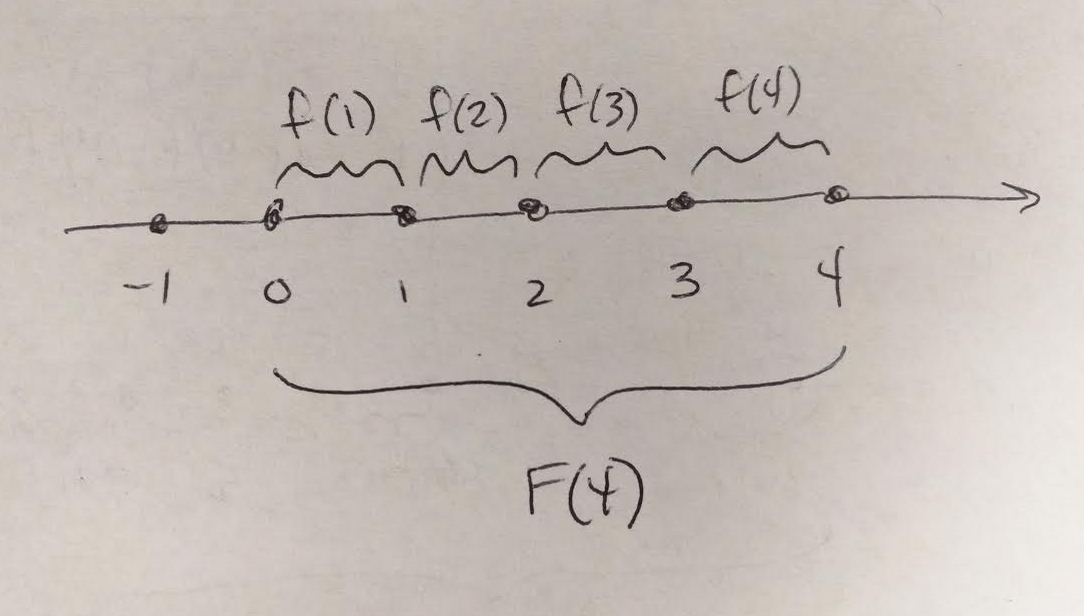 f(1) f(2) f(3) f(4)
-1 0 1 2 3 4
F(4)